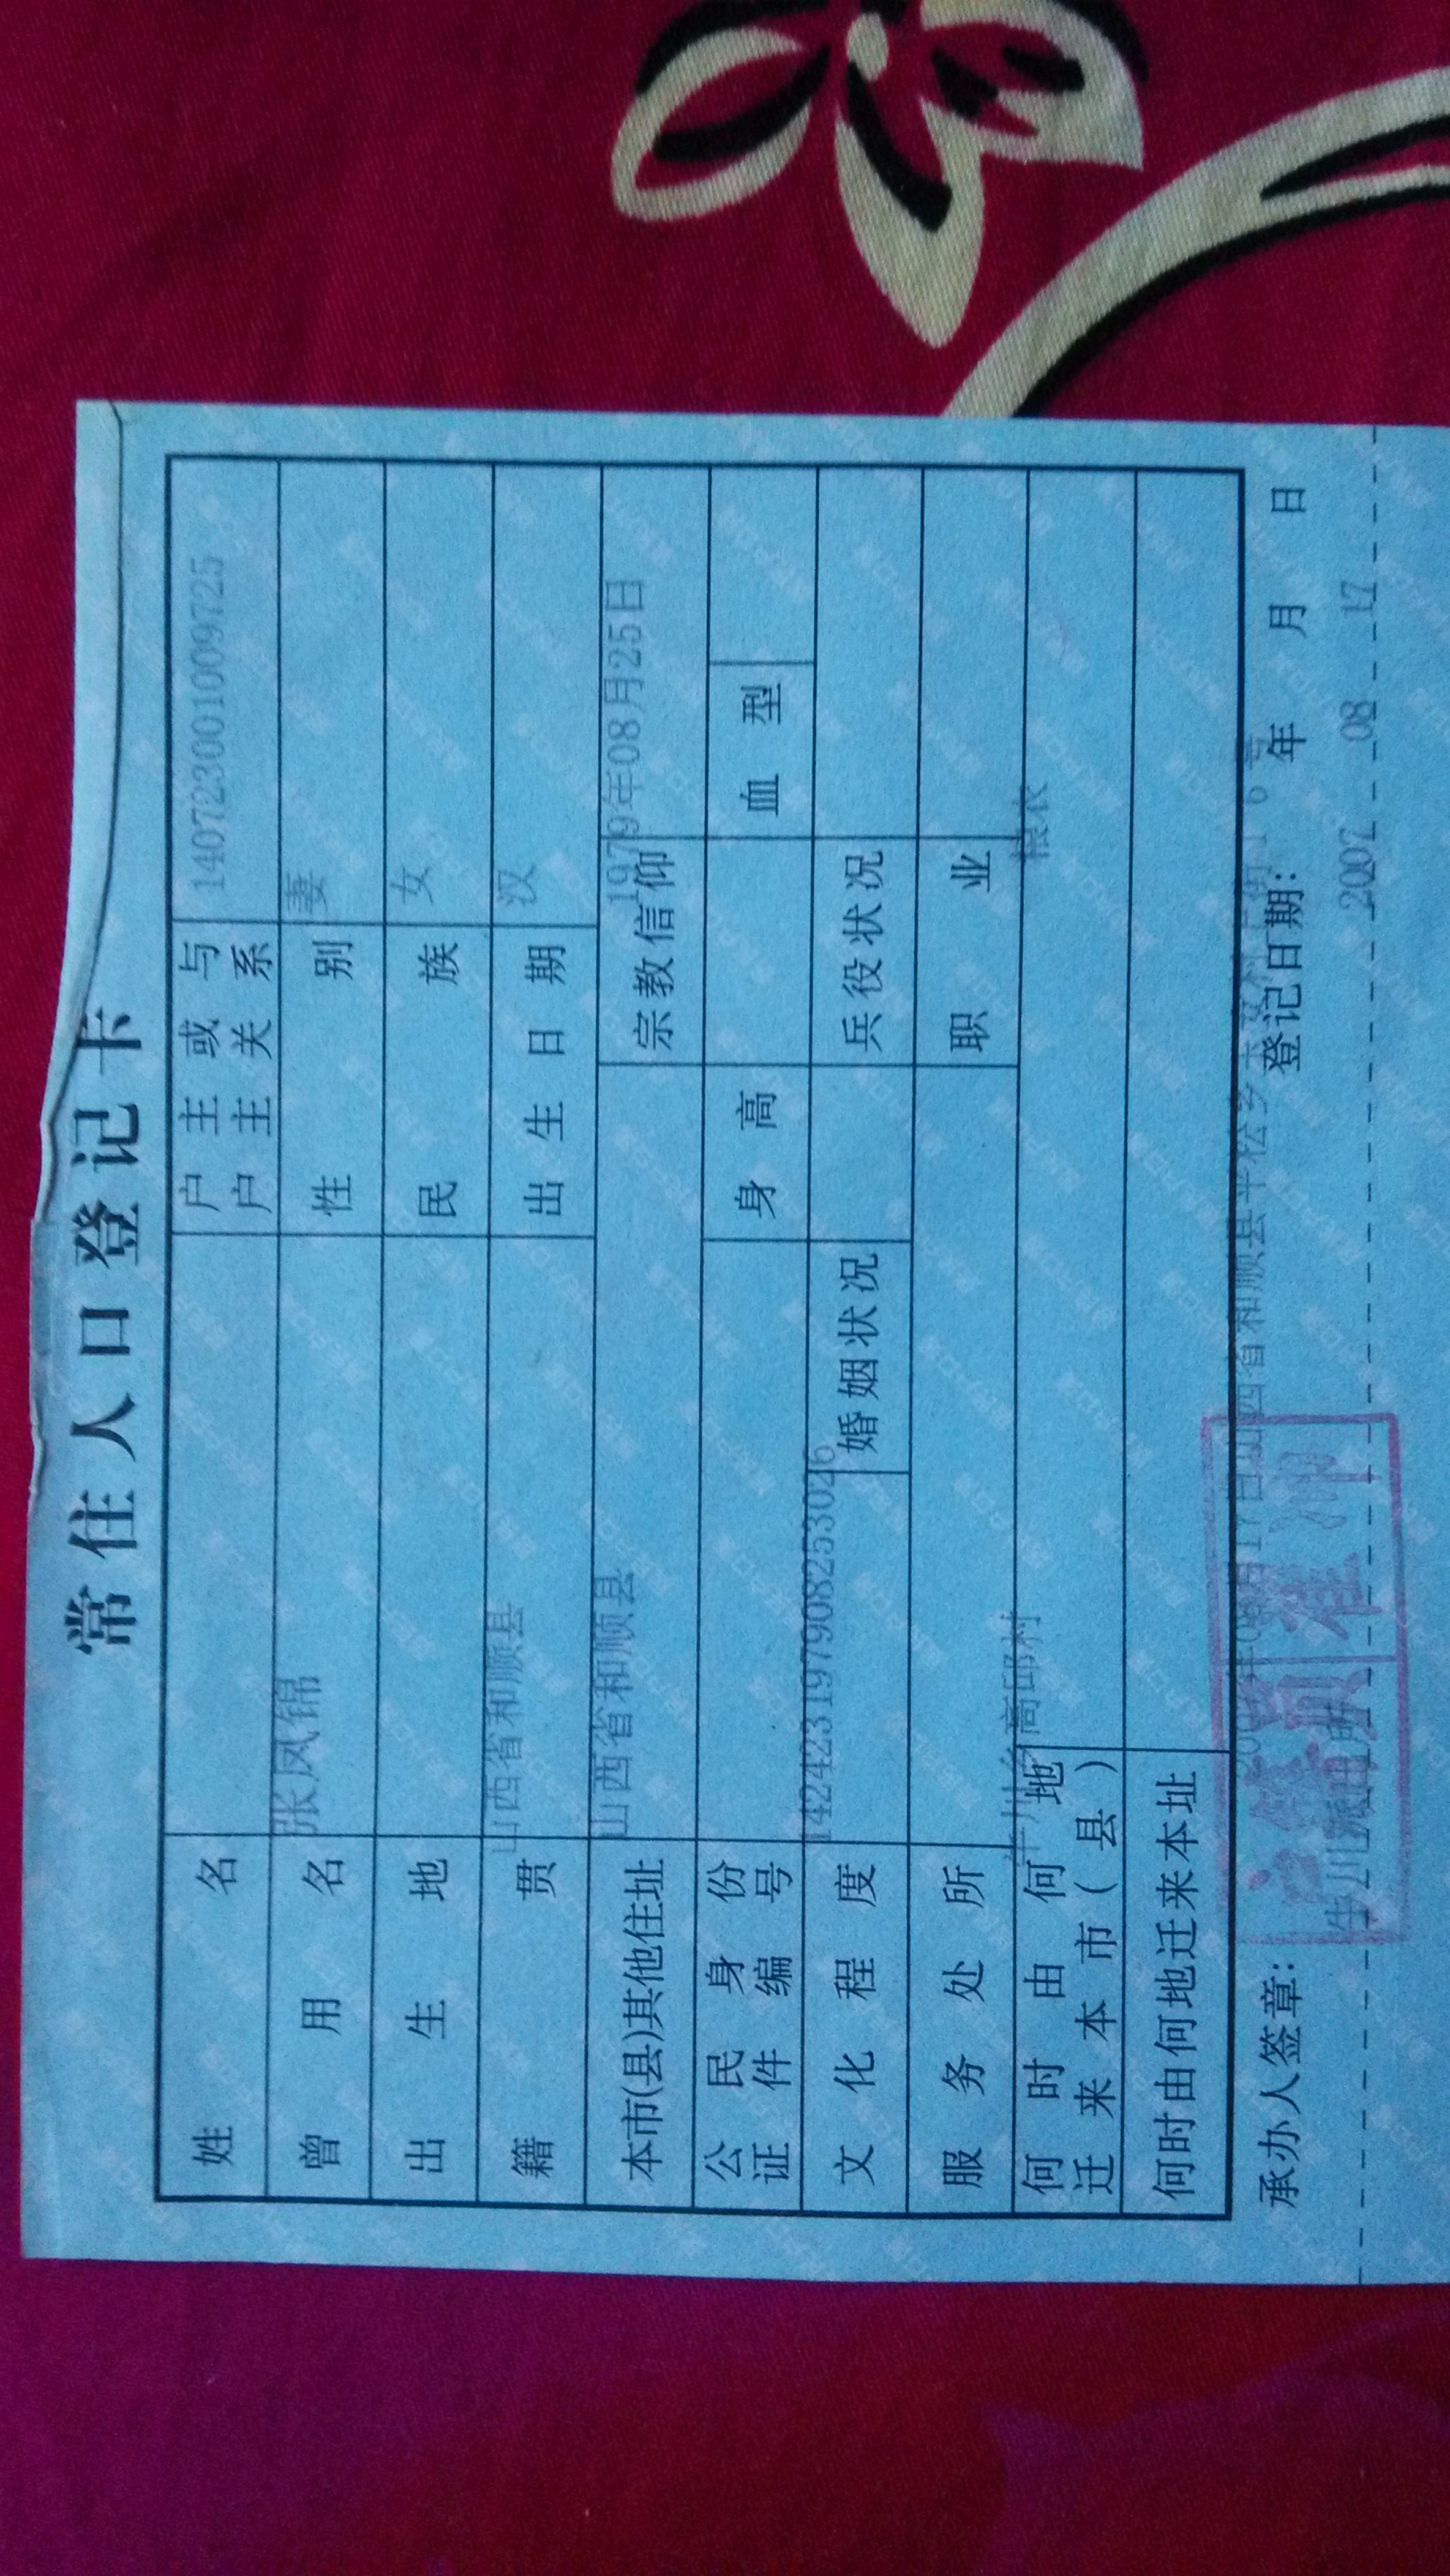 常住人口登记卡
1407230010009725
姓 名 户主或与户主关系
张凤锦 妻
曾用名 性 别
女
出生地 民 族
山西省和顺县 汉
籍 贯 出生日期
山西省和顺县 1979年08月25日
本市(县)其他住址 宗教信仰
公民身份证件编号 身 高 血 型
142423197908253026
文化程度 婚姻状况 兵役状况
服务处所 职 业
高邱村 粮农
何时由何地迁来本市(县)
何时由何地迁来本址
17日山西省和顺县平松乡
承办人签章: 登记日期: 年 月 日
派出所 2007 08 17